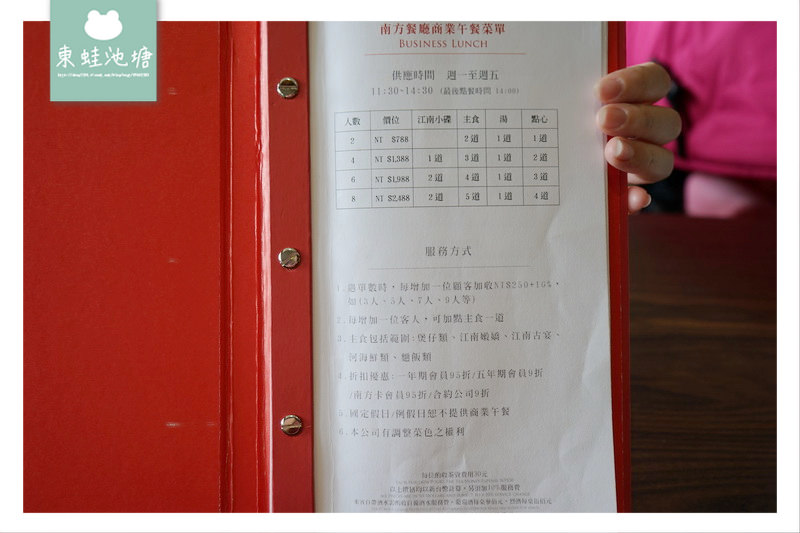 東蛙池塘
南方餐廳商業午餐菜單
BUSINESS LUNCH
供應時間 週一至週五
11:30~14:30 (最後點餐時間 14:00)
人數 價位 江南小碟 主食 湯 點心
2 NT $788 2道 1道 1道
4 NT $1,388 1道 3道 1道 2道
6 NT $1,988 2道 4道 1道 3道
8 NT $2,488 2道 5道 1道 4道
服務方式
1.遇單數時，每增加一位顧客加收NT$250+10%，
如(3人、5人、7人、9人等)
2.每增加一位客人，可加點主食一道
3.主食包括範圍:煲仔類、江南嫩嬌、江南古宴、
河海鮮類、麵飯類
4.折扣優惠:一年期會員95折/五年期會員9折
/南方卡會員95折/合約公司9折
5.國定假日/例假日恕不提供商業午餐
6.本公司有調整菜色之權利
每位酌收茶資費用30元
以上價格均以新台幣計算，另須加10%服務費